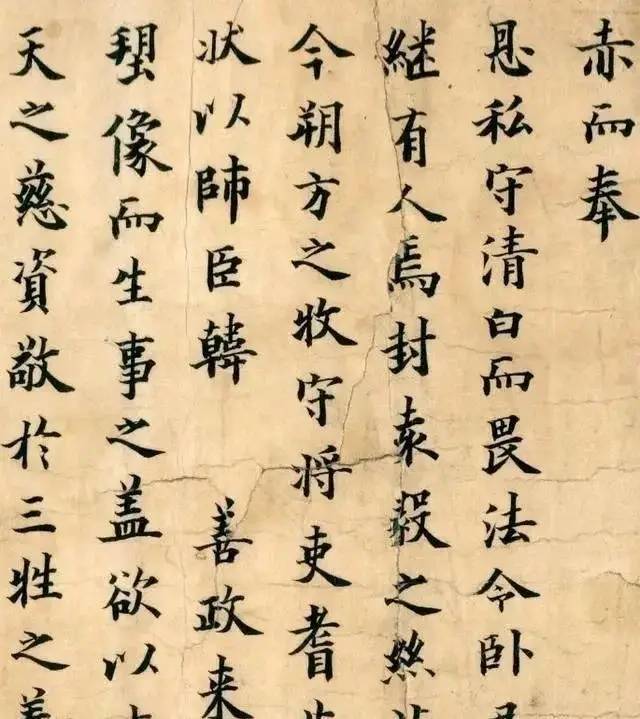 赤而奉
恩私守清白而畏法令卧
継有人焉封袁毅之絲
今朔方之牧守将吏耆
状以帥臣韓 善政来
塑像而生事之盖欲以
天之慈資敬於三牲之